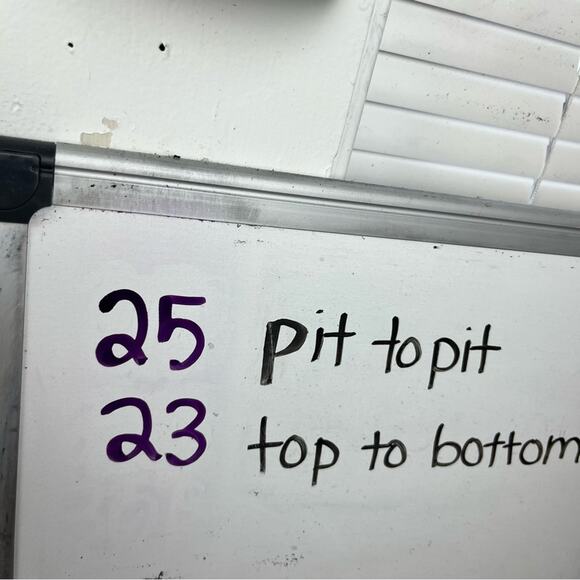 25 pit to pit
23 top to bottom